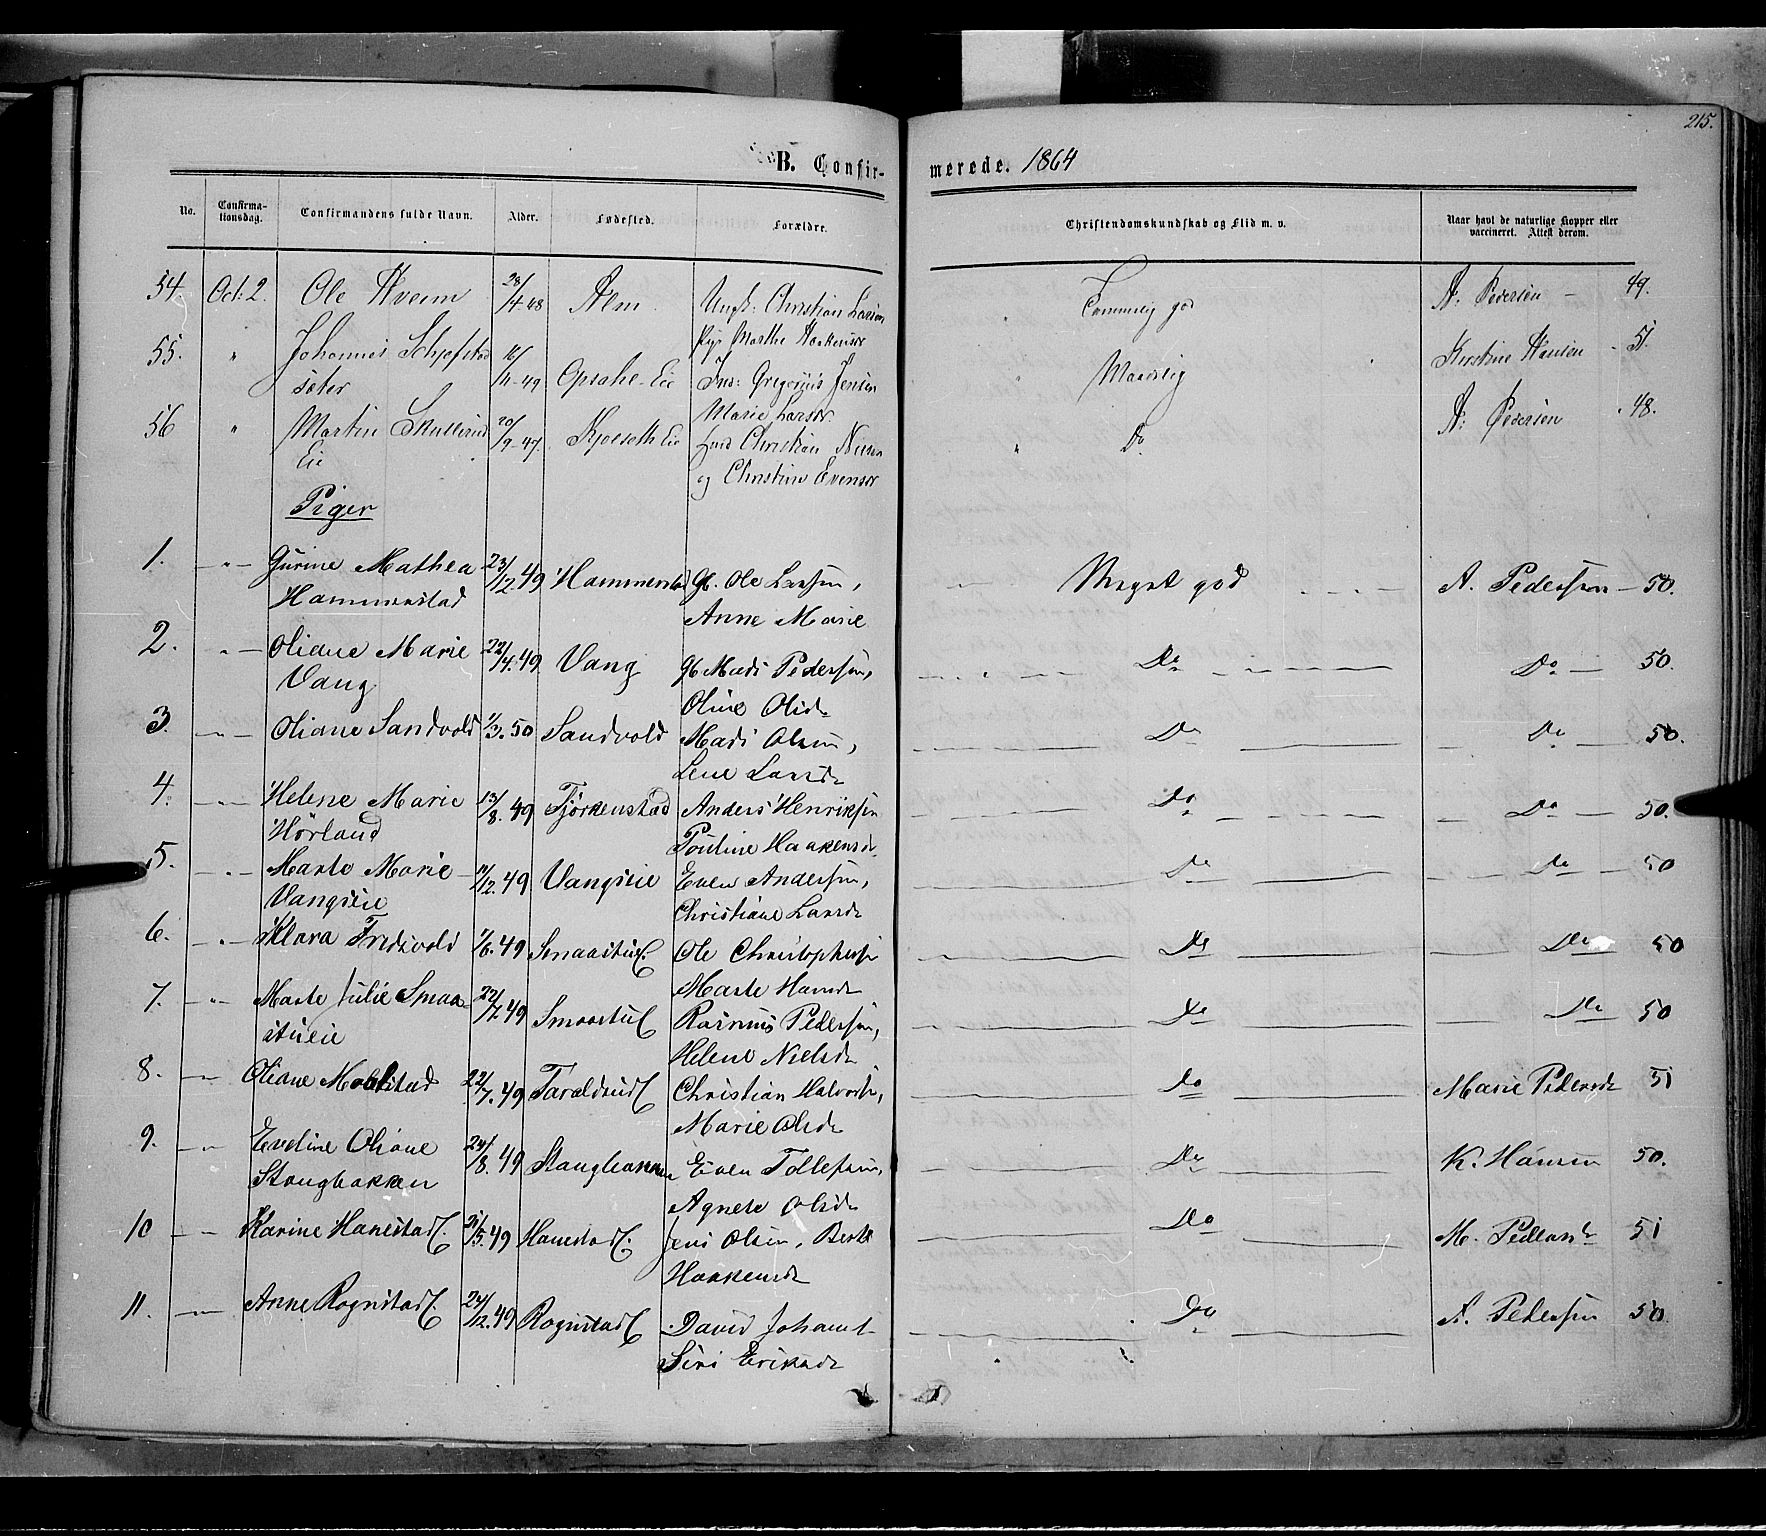 215.
B. Confir- merede. 1864
No. Confirma-tionsdag. Confirmandens fulde Navn. Alder. Fødested. Forældre. Christendomskundskab og Flid m. v. Naar havt de naturlige Kopper eller vaccineret. Attest derom.
54. Oct: 2. Ole Hvem 28/4-48 Alm Ungk: Christian Larsen Temmelig god A. Pedersen - 49.
Pige Marthe Haakensdr
55. " Johannes Schjefstad 16/11-49 Opsahl-Eie Ins: Gregorius Jensen " Maadelig Kirstine Hansen - 51.
sæter Marie Larsdr
56 " Martin Skullerud 20/9-47. Kjolseth Eie Christian " Do A: Pedersen . 48.
Eie og Christine Evensdr
Piger
1. -"- Gurine Mathea 23/12.49 Hammerstad Gb. Ole Larsen, Meget god A. Pedersen - 50.
Hammerstad Anne Marie
2. "- Oliane Marie 22/4.49 Vang Gb Mads Pedersen, Do Do - 50.
Vang Oline Olsd
3. -"- Oliane Sandvold 1/3.50 Sandvold Mads Olsen, Do Do 50.
Lene Larsd
4. -"- Helene Marie 13/8.49 Fjørkenstad Anders Henriksen Do Do 50.
Hörland Pouline Haakensd
5. -"- Marte Marie 11/12.49 Vangseie Even Andersen, Do Do - 50
Vangseie Christiane Larsd
6. -"- Klara Fredsvold 1/6.49 Smaastue Ole Christophersen Do Do 50
Marte Hansd
7. "- Marte Julie Smaa- 22/7.49 Smaastue Rasmus Pedersen, Do Do 50
stueie Helene Nielsd
8. -"- Oliane Molstad 22/7.49 Taraldrud Christian Halvorsen, Do Marie Pedersd 51
Marie Olsd
9. -"- Eveline Oliane 24/8.49 Stangbakken Even Tollefsen, Do K. Hansen 50.
Stangbakken Agnete Olsd
10 -"- Karine Hanestad 21/5.49 Hanestad Jens Olsen, Berte Do M. Pedersd 51
Haakensd
11. -"- Anne Rognstad 24/12.49 Rognstad David Johans Do A. Pedersen 50.
Siri Eriksd